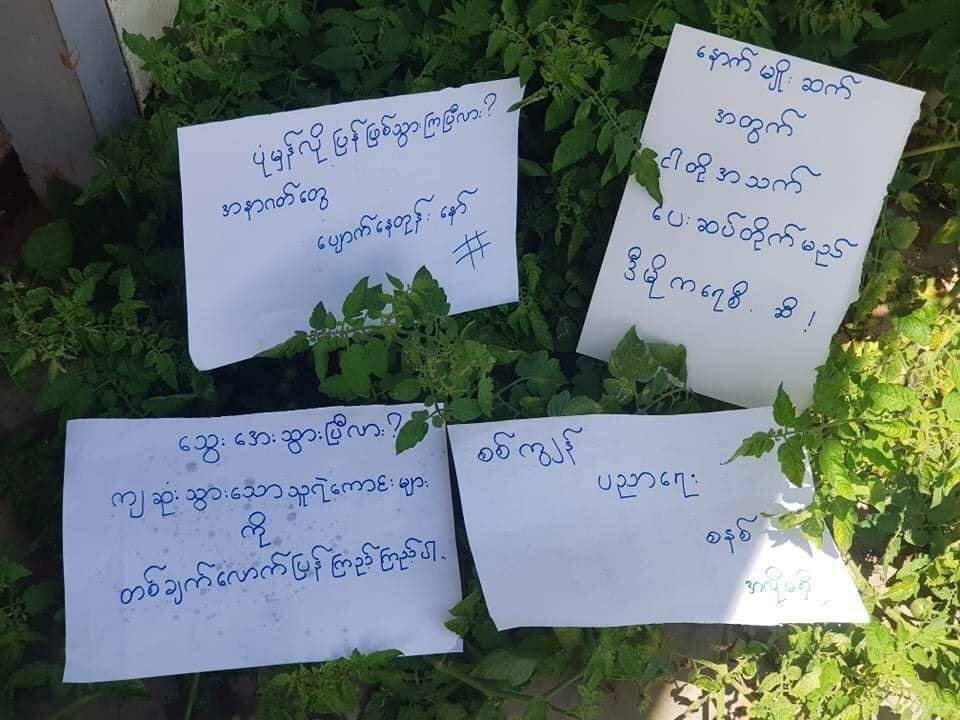 ပုံမှန်လို ပြန်ဖြစ်သွားကြပြီလား?
အနာဂတ်တွေ
ပျောက်နေတုန်း နော်
#
နောက် မျိုး ဆက်
အတွက်
ငါတို့ အသက်
ပေး ဆပ်တိုက် မည်
ဒီမို ကရေစီ . ဆီ !
သွေး အေး သွားပြီလား?
ကျ ဆုံး သွားသော သူရဲကောင်း များ
ကို
တစ်ချက်လောက် ပြန် ကြည့် ကြည့် ပါ .
စစ် ကျွန်
ပညာရေး
စနစ်
အလိုမရှိ